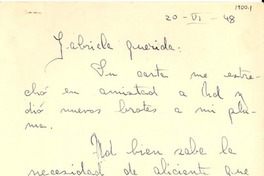 1900.1
20-VI-48
Gabriela querida:
Su carta me estre-
chó en amistad a Ud y
dió nuevos brotes a mi plu-
ma.
Ud bien sabe la
necesidad de aliciente que